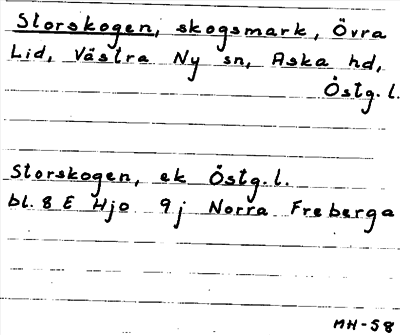 Storskogen, skogsmark, Övra
Lid, Västra Ny sn, Aska hd,
Östg. l.
Storskogen, ek Östg. l.
bl. 8 E Hjo 9j Norra Freberga
MH-58